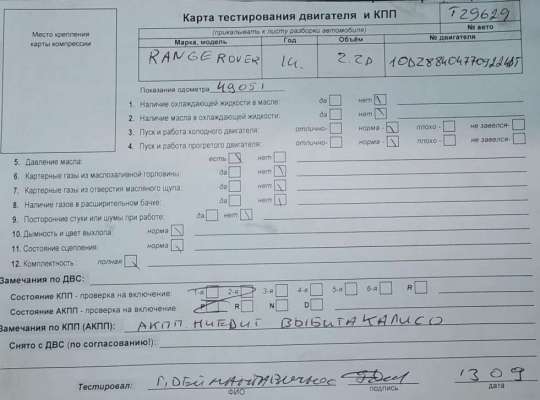 Место крепления
карты компрессии
Карта тестирования двигателя и КПП
T29629
(прикалывать к листу разборки автомобиля)
№ авто
Марка, модель Год Объём № двигателя
RANGE ROVER 14. 2.2D
Показании одометра 49051
1. Наличие охлаждающей жидкости в масле: да нет
2. Наличие масла в охлаждающей жидкости: да нет
3. Пуск и работа холодного двигателя: отлично- норма - плохо - не завелся-
4. Пуск и работа прогретого двигателя: отлично- норма - плохо - не завелся-
5. Давление масла: есть нет
6. Картерные газы из маслозаливной горловины: да нет
7. Картерные газы из отверстия масляного щупа: да нет
8. Наличие газов в расширительном бачке: да нет
9. Посторонние стуки или шумы при работе: да нет
10. Дымность и цвет выхлопа: норма
11. Состояние сцепления: норма
12. Комплектность полная
Замечания по ДВС:
Состояние КПП - проверка на включение: 1-я 2-я 3-я 4-я 5-я 6-я R
Состояние АКПП - проверка на включение: P R N D
Замечания по КПП (АКПП): АКПП. НИЕДИТ ВЫБИТА КАЛИСО
Снято с ДВС (по согласованию!):
Тестировал:
ФИО подпись дата
13 09